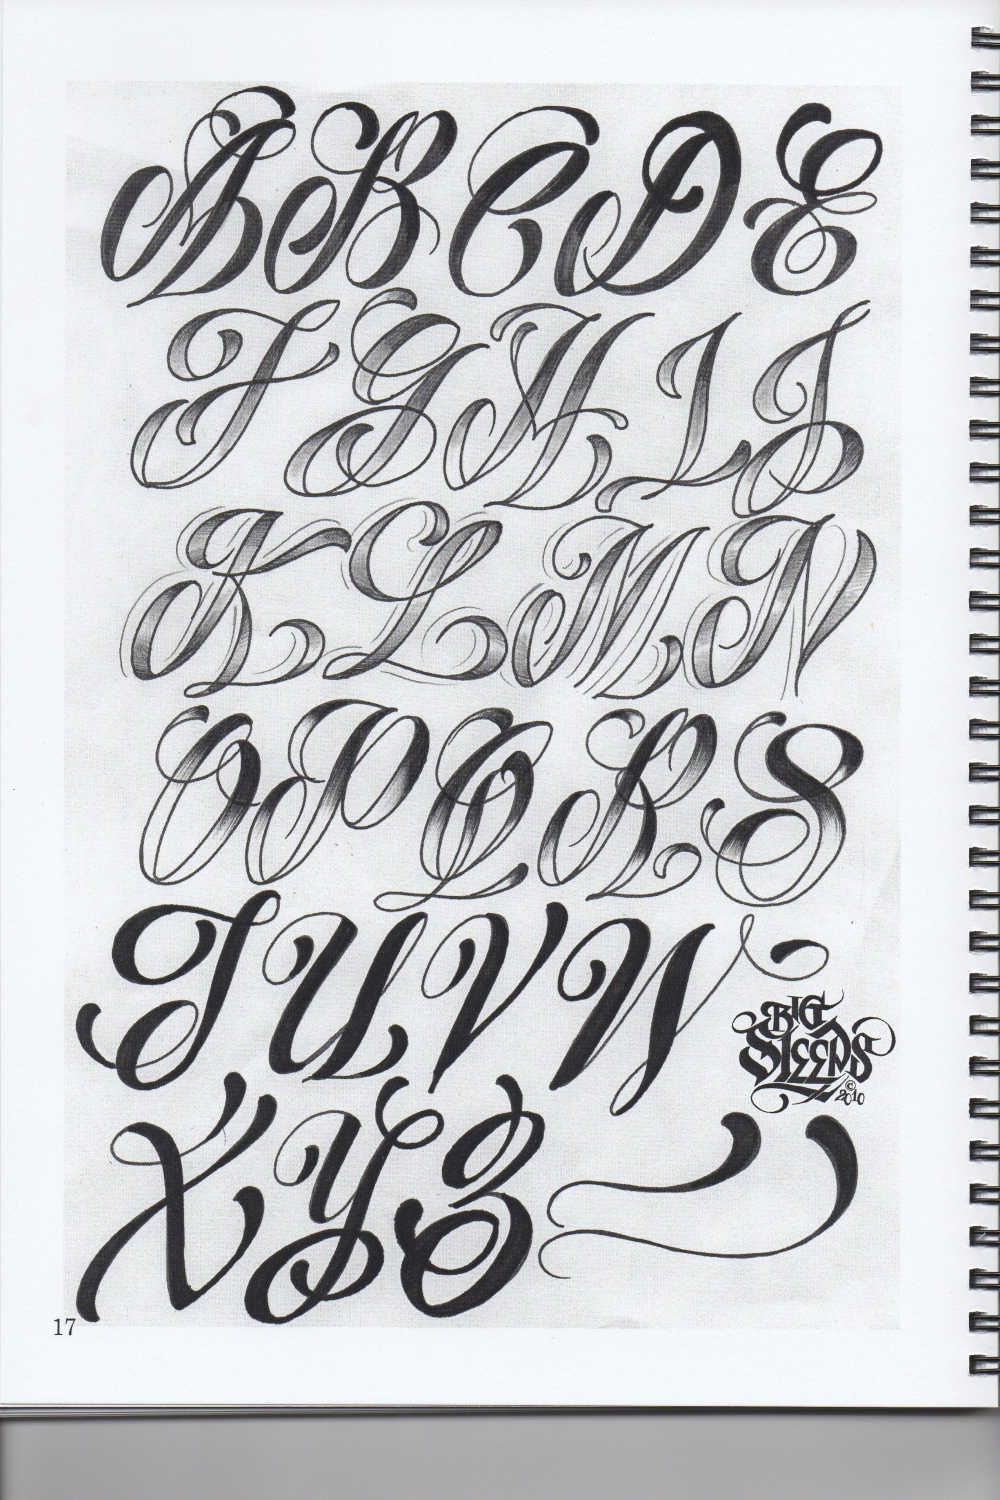 A B C D E
F G H I J
K L M N
O P Q R S
T U V W
BIG
SLEEPS
© 2010
X Y Z
17